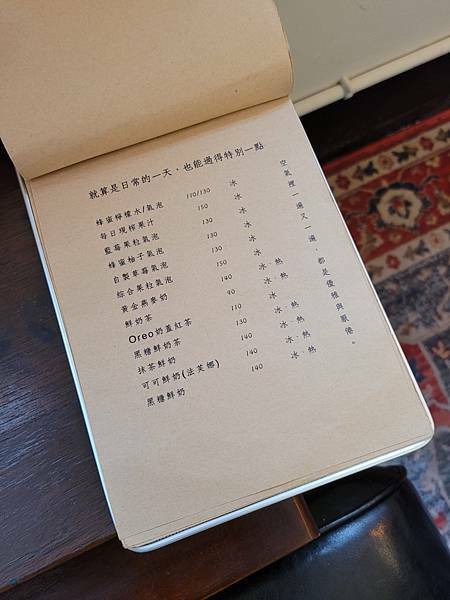 就算是日常的一天、也能過得特別一點
蜂蜜檸檬水/氣泡 110/130 冰
每日現榨果汁 150 冰
藍莓果粒氣泡 130 冰
蜂蜜柚子氣泡 130 冰
自製草莓氣泡 130 冰
綜合果粒氣泡 150 冰
黃金燕麥奶 140 冰.熱
鮮奶茶 90 冰.熱
Oreo奶蓋紅茶 110 冰
黑糖鮮奶茶 130 冰.熱
抹茶鮮奶 140 冰.熱
可可鮮奶(法芙娜) 140 冰.熱
黑糖鮮奶 140 冰.熱
空氣裡一遍又一遍、都是優雅與厭倦。